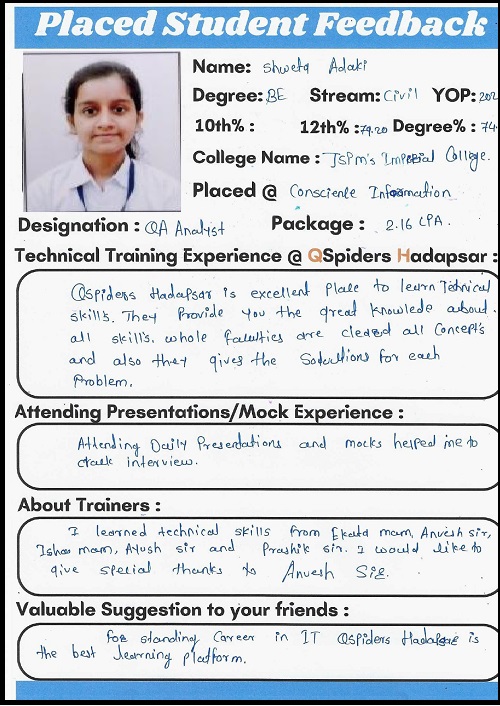 Placed Student Feedback
Name: Shweta Adaki
Degree: BE Stream: Civil YOP: 202
10th% : 12th% : 79.20 Degree% : 74
College Name : JSPM's Imperial College.
Placed @ Conscience Information
Designation : QA Analyst Package : 2.16 LPA.
Technical Training Experience @ QSpiders Hadapsar :
Qspiders Hadapsar is excellent place to learn Technical
skills. They Provide you the great knowlede about.
all skill's. whole faculties are cleared all Concept's
and also they gives the Soductions for each
Problem.
Attending Presentations/Mock Experience :
Attending Daily Presentations and mocks helped me to
crack interview.
About Trainers :
I learned technical skills from Ekata mam, Anvesh sir,
Isha mam, Ayush sir and Prashik sir. I would like to
give special thanks to Anvesh Sir.
Valuable Suggestion to your friends :
For standing Career in IT Qspiders Hadapsar is
the best learning platform.